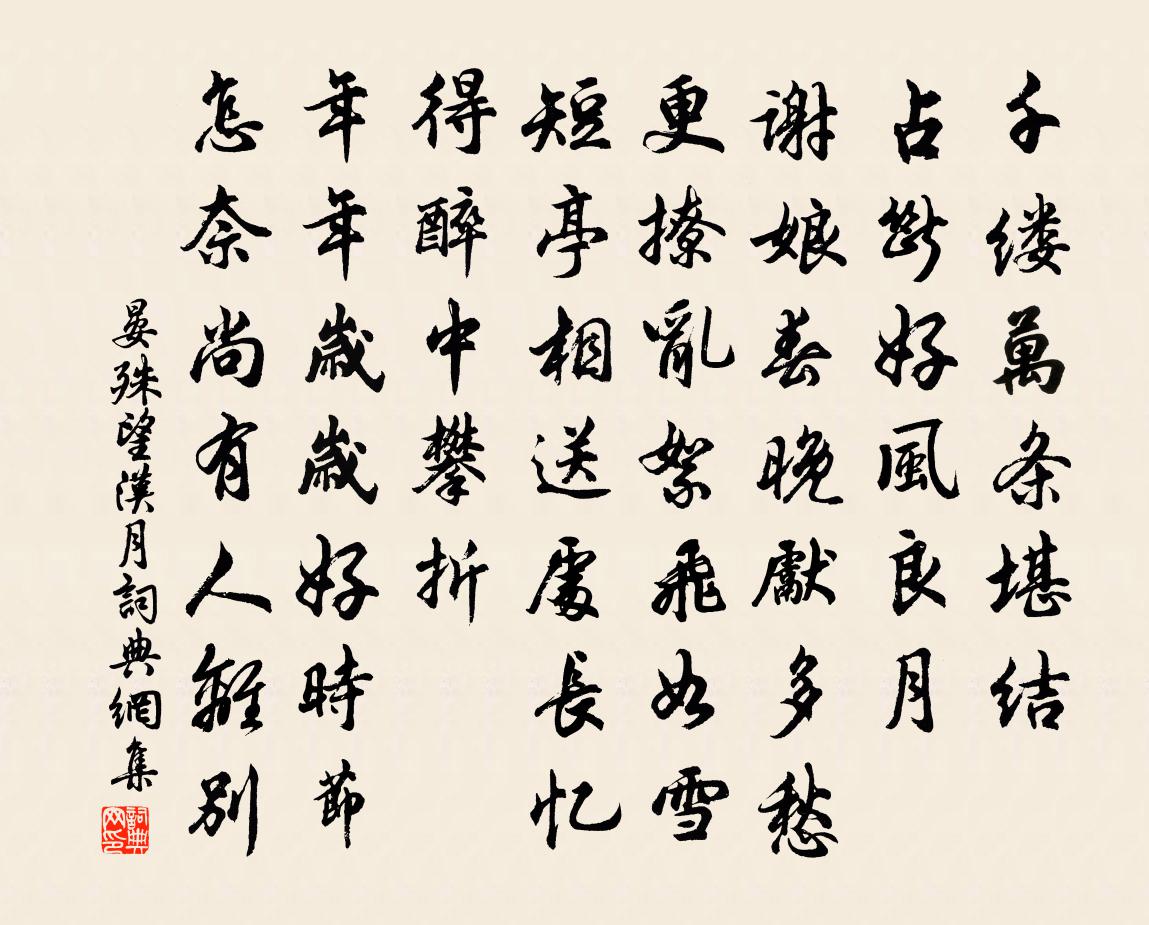 千缕萬条堪结
占断好風良月
谢娘春晚獻多愁
更撩亂絮飛如雪
短亭相送處長忆
得醉中攀折
年年歲歲好時節
怎奈尚有人離别
晏殊望漢月詞典網集
詞典网印